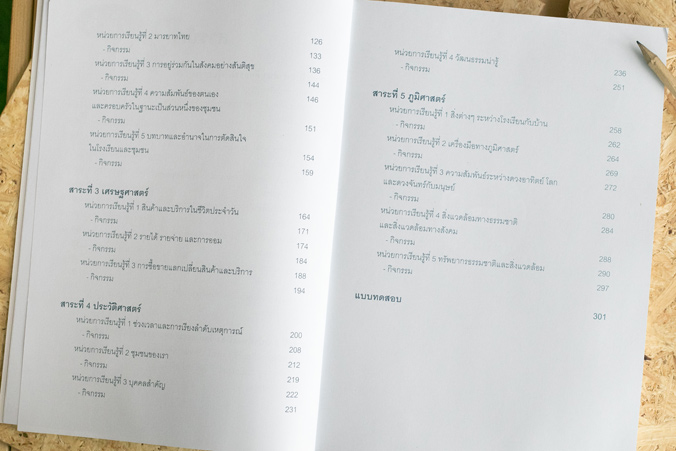 หน่วยการเรียนรู้ที่ 2 มารยาทไทย 126
- กิจกรรม 133
หน่วยการเรียนรู้ที่ 3 การอยู่ร่วมกันในสังคมอย่างสันติสุข 136
- กิจกรรม 144
หน่วยการเรียนรู้ที่ 4 ความสัมพันธ์ของตนเอง 146
และครอบครัวในฐานะเป็นส่วนหนึ่งของชุมชน
- กิจกรรม 151
หน่วยการเรียนรู้ที่ 5 บทบาทและอำนาจในการตัดสินใจ
ในโรงเรียนและชุมชน 154
- กิจกรรม 159
สาระที่ 3 เศรษฐศาสตร์
หน่วยการเรียนรู้ที่ 1 สินค้าและบริการในชีวิตประจำวัน 164
- กิจกรรม 171
หน่วยการเรียนรู้ที่ 2 รายได้ รายจ่าย และการออม 174
- กิจกรรม 184
หน่วยการเรียนรู้ที่ 3 การซื้อขายแลกเปลี่ยนสินค้าและบริการ 188
- กิจกรรม 194
สาระที่ 4 ประวัติศาสตร์
หน่วยการเรียนรู้ที่ 1 ช่วงเวลาและการเรียงลำดับเหตุการณ์ 200
- กิจกรรม 208
หน่วยการเรียนรู้ที่ 2 ชุมชนของเรา 212
- กิจกรรม 219
หน่วยการเรียนรู้ที่ 3 บุคคลสำคัญ 222
- กิจกรรม 231
หน่วยการเรียนรู้ที่ 4 วัฒนธรรมน่ารู้ 236
- กิจกรรม 251
สาระที่ 5 ภูมิศาสตร์
หน่วยการเรียนรู้ที่ 1 สิ่งต่างๆ ระหว่างโรงเรียนกับบ้าน 258
- กิจกรรม 262
หน่วยการเรียนรู้ที่ 2 เครื่องมือทางภูมิศาสตร์ 264
- กิจกรรม 269
หน่วยการเรียนรู้ที่ 3 ความสัมพันธ์ระหว่างดวงอาทิตย์ โลก 272
และดวงจันทร์กับมนุษย์
- กิจกรรม 280
หน่วยการเรียนรู้ที่ 4 สิ่งแวดล้อมทางธรรมชาติ 284
และสิ่งแวดล้อมทางสังคม
- กิจกรรม 288
หน่วยการเรียนรู้ที่ 5 ทรัพยากรธรรมชาติและสิ่งแวดล้อม 290
- กิจกรรม 297
แบบทดสอบ 301